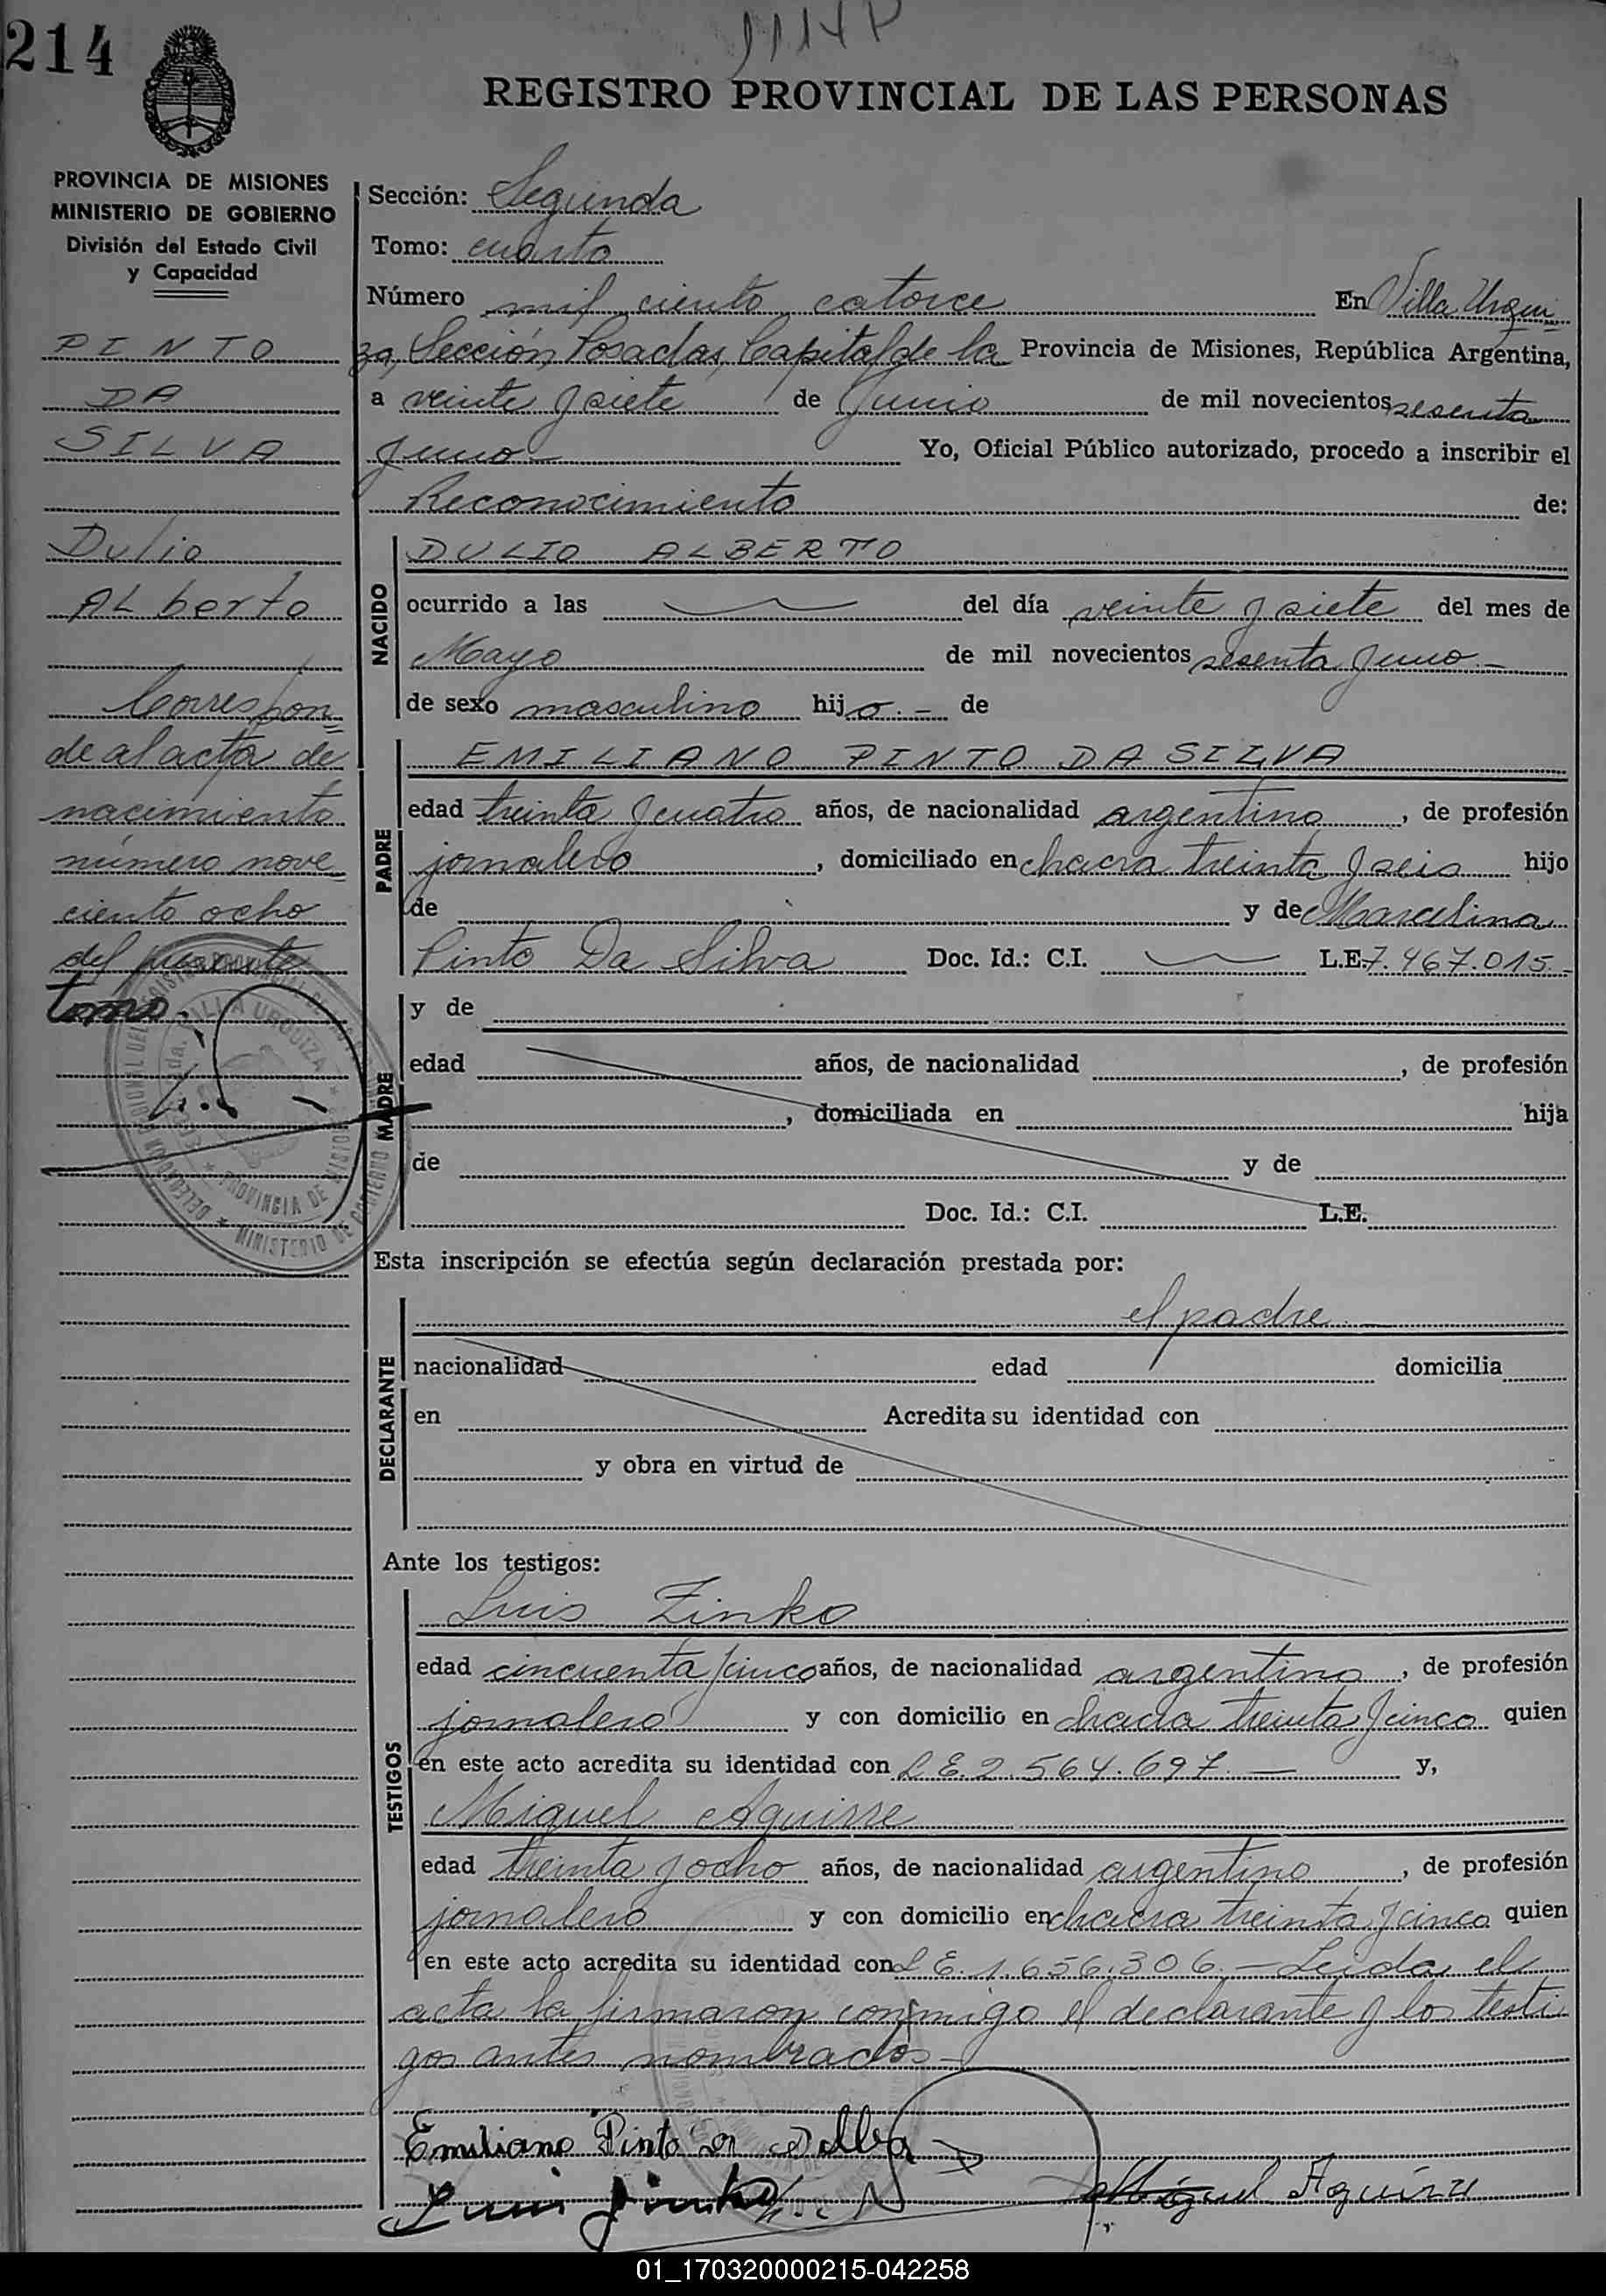 214
1114 P
REGISTRO PROVINCIAL DE LAS PERSONAS
PROVINCIA DE MISIONES
MINISTERIO DE GOBIERNO
División del Estado Civil
y Capacidad
PINTO
DA
SILVA
Dulio
ALberto
Correspon=
de al acta de
nacimiento
número nove
ciento ocho
del presente
tomo.
Sección: Segunda
Tomo: cuarto
Número mil ciento catorce En Villa Urqui
za, Sección Posadas, Capital de la Provincia de Misiones, República Argentina,
a veinte y siete de Junio de mil novecientos sesenta
y uno - Yo, Oficial Público autorizado, procedo a inscribir el
Reconocimiento de:
NACIDO
DULIO ALBERTO
ocurrido a las del día veinte y siete del mes de
Mayo de mil novecientos sesenta y uno -
de sexo masculino hijo.- de
PADRE
EMILIANO PINTO DA SILVA
edad treinta y cuatro años, de nacionalidad argentino, de profesión
jornalero, domiciliado en chacra treinta y seis hijo
de y de Marcelina
Pinto Da Silva Doc. Id.: C.I. L.E. 7.467.015.-
MADRE
y de
edad años, de nacionalidad , de profesión
, domiciliada en hija
de y de
Doc. Id.: C.I. L.E.
Esta inscripción se efectúa según declaración prestada por:
DECLARANTE
el padre.
nacionalidad edad domicilia
en Acredita su identidad con
y obra en virtud de
Ante los testigos:
TESTIGOS
Luis Zinko
edad cincuenta y cinco años, de nacionalidad argentino, de profesión
jornalero y con domicilio en chacra treinta y cinco quien
en este acto acredita su identidad con L E. 2.564.697.- y,
Miguel Aguirre
edad treinta y ocho años, de nacionalidad argentino, de profesión
jornalero y con domicilio en chacra treinta y cinco quien
en este acto acredita su identidad con L E. 1.656.306.- Leida el
acta la firmaron conmigo el declarante y los testi
gos antes nombrados-
Emiliano Pinto da Silva
Luis Zinko
Miguel Aguirre
VILLA URQUIZA
PROVINCIA DE MISIONES
MINISTERIO DE GOBIERNO
01_170320000215-042258